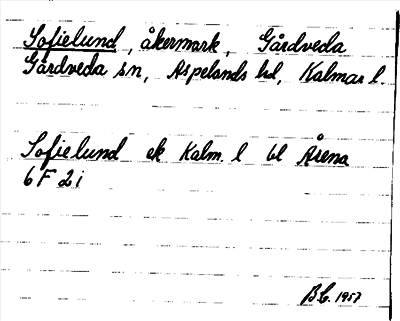 Sofielund, åkermark, Gårdveda
Gårdveda sn, Aspelands hd, Kalmar l.
Sofielund ek Kalm. l bl Årena
6F 2i
BL. 1957